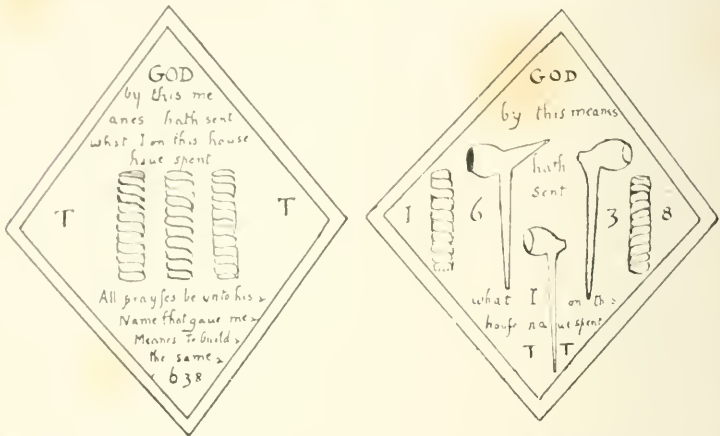 GOD
by this me
anes hath sent
what I on this house
haue spent
T T
All prayses be unto his
Name that gaue me
Meanes To build
the same
1638
GOD
by this means
hath
sent
1 6 3 8
what I on th
house haue spent
T T